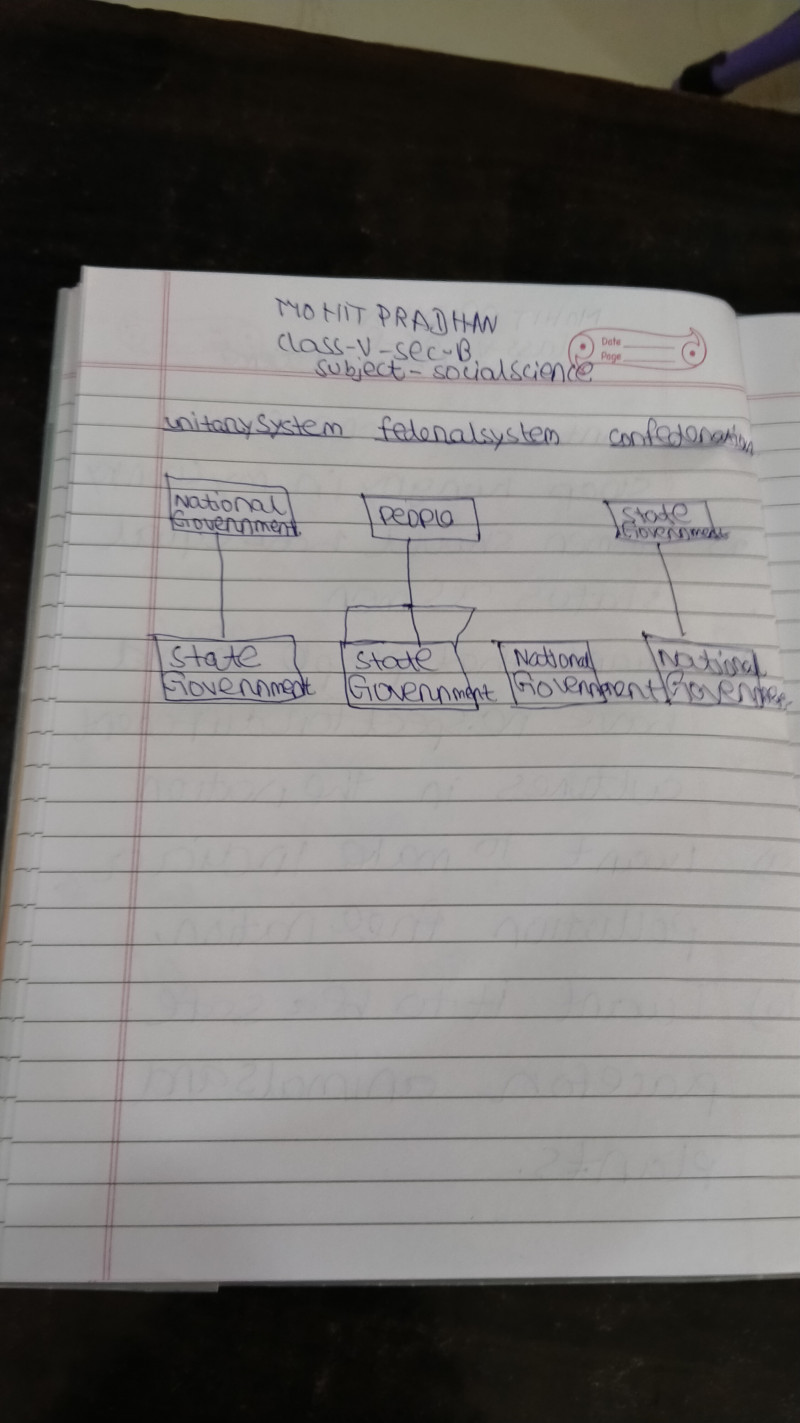 MOHIT PRADHAN
class-V-sec-B
Date
Page
subject-socialscience
unitarysystem federalsystem confederation
National
Government
People
State
Government
State
Government
State
Government
National
Government
National